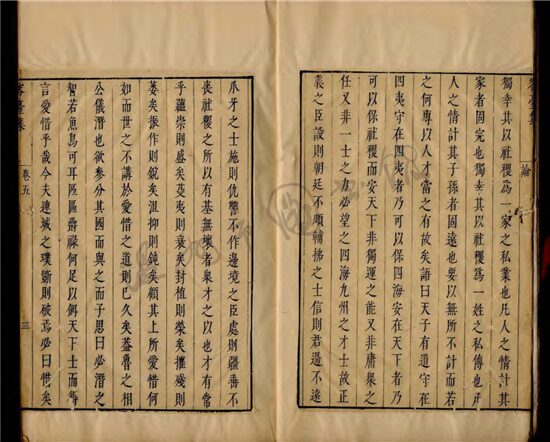 獨幸其以社稷爲一家之私業也凡人之情計其
家者固完也獨幸其以社稷爲一姓之私傳也凡
人之情計其子孫者固遠也要以無所不計而若
之何專以人才當之有故矣語曰天子有道守在
四夷守在四夷者乃可以保四海安在天下者乃
可以保社稷而安天下非獨運之能又非庸衆之
任又非一士之力必望之四海九州之才士故正
義之臣設則朝廷不頗輔拂之士信則君過不遠
爪牙之士施則仇讐不作邊境之臣處則疆垂不
喪社稷之所以有基無壞者衆才之以也才有常
乎蘊崇則盛矣芟夷則衰矣封植則榮矣摧殘則
萎矣振作則銳矣沮抑則鈍矣顧其上所愛惜何
如而世之不講於愛惜之道則已久矣蓋魯之相
公儀潛也欲參分其國而與之而子思曰必潛之
智若魚鳥可耳區區爵祿何足以餌天下士而等
言愛惜乎哉今夫連城之璞斷則破焉必曰惜矣
卷五
三